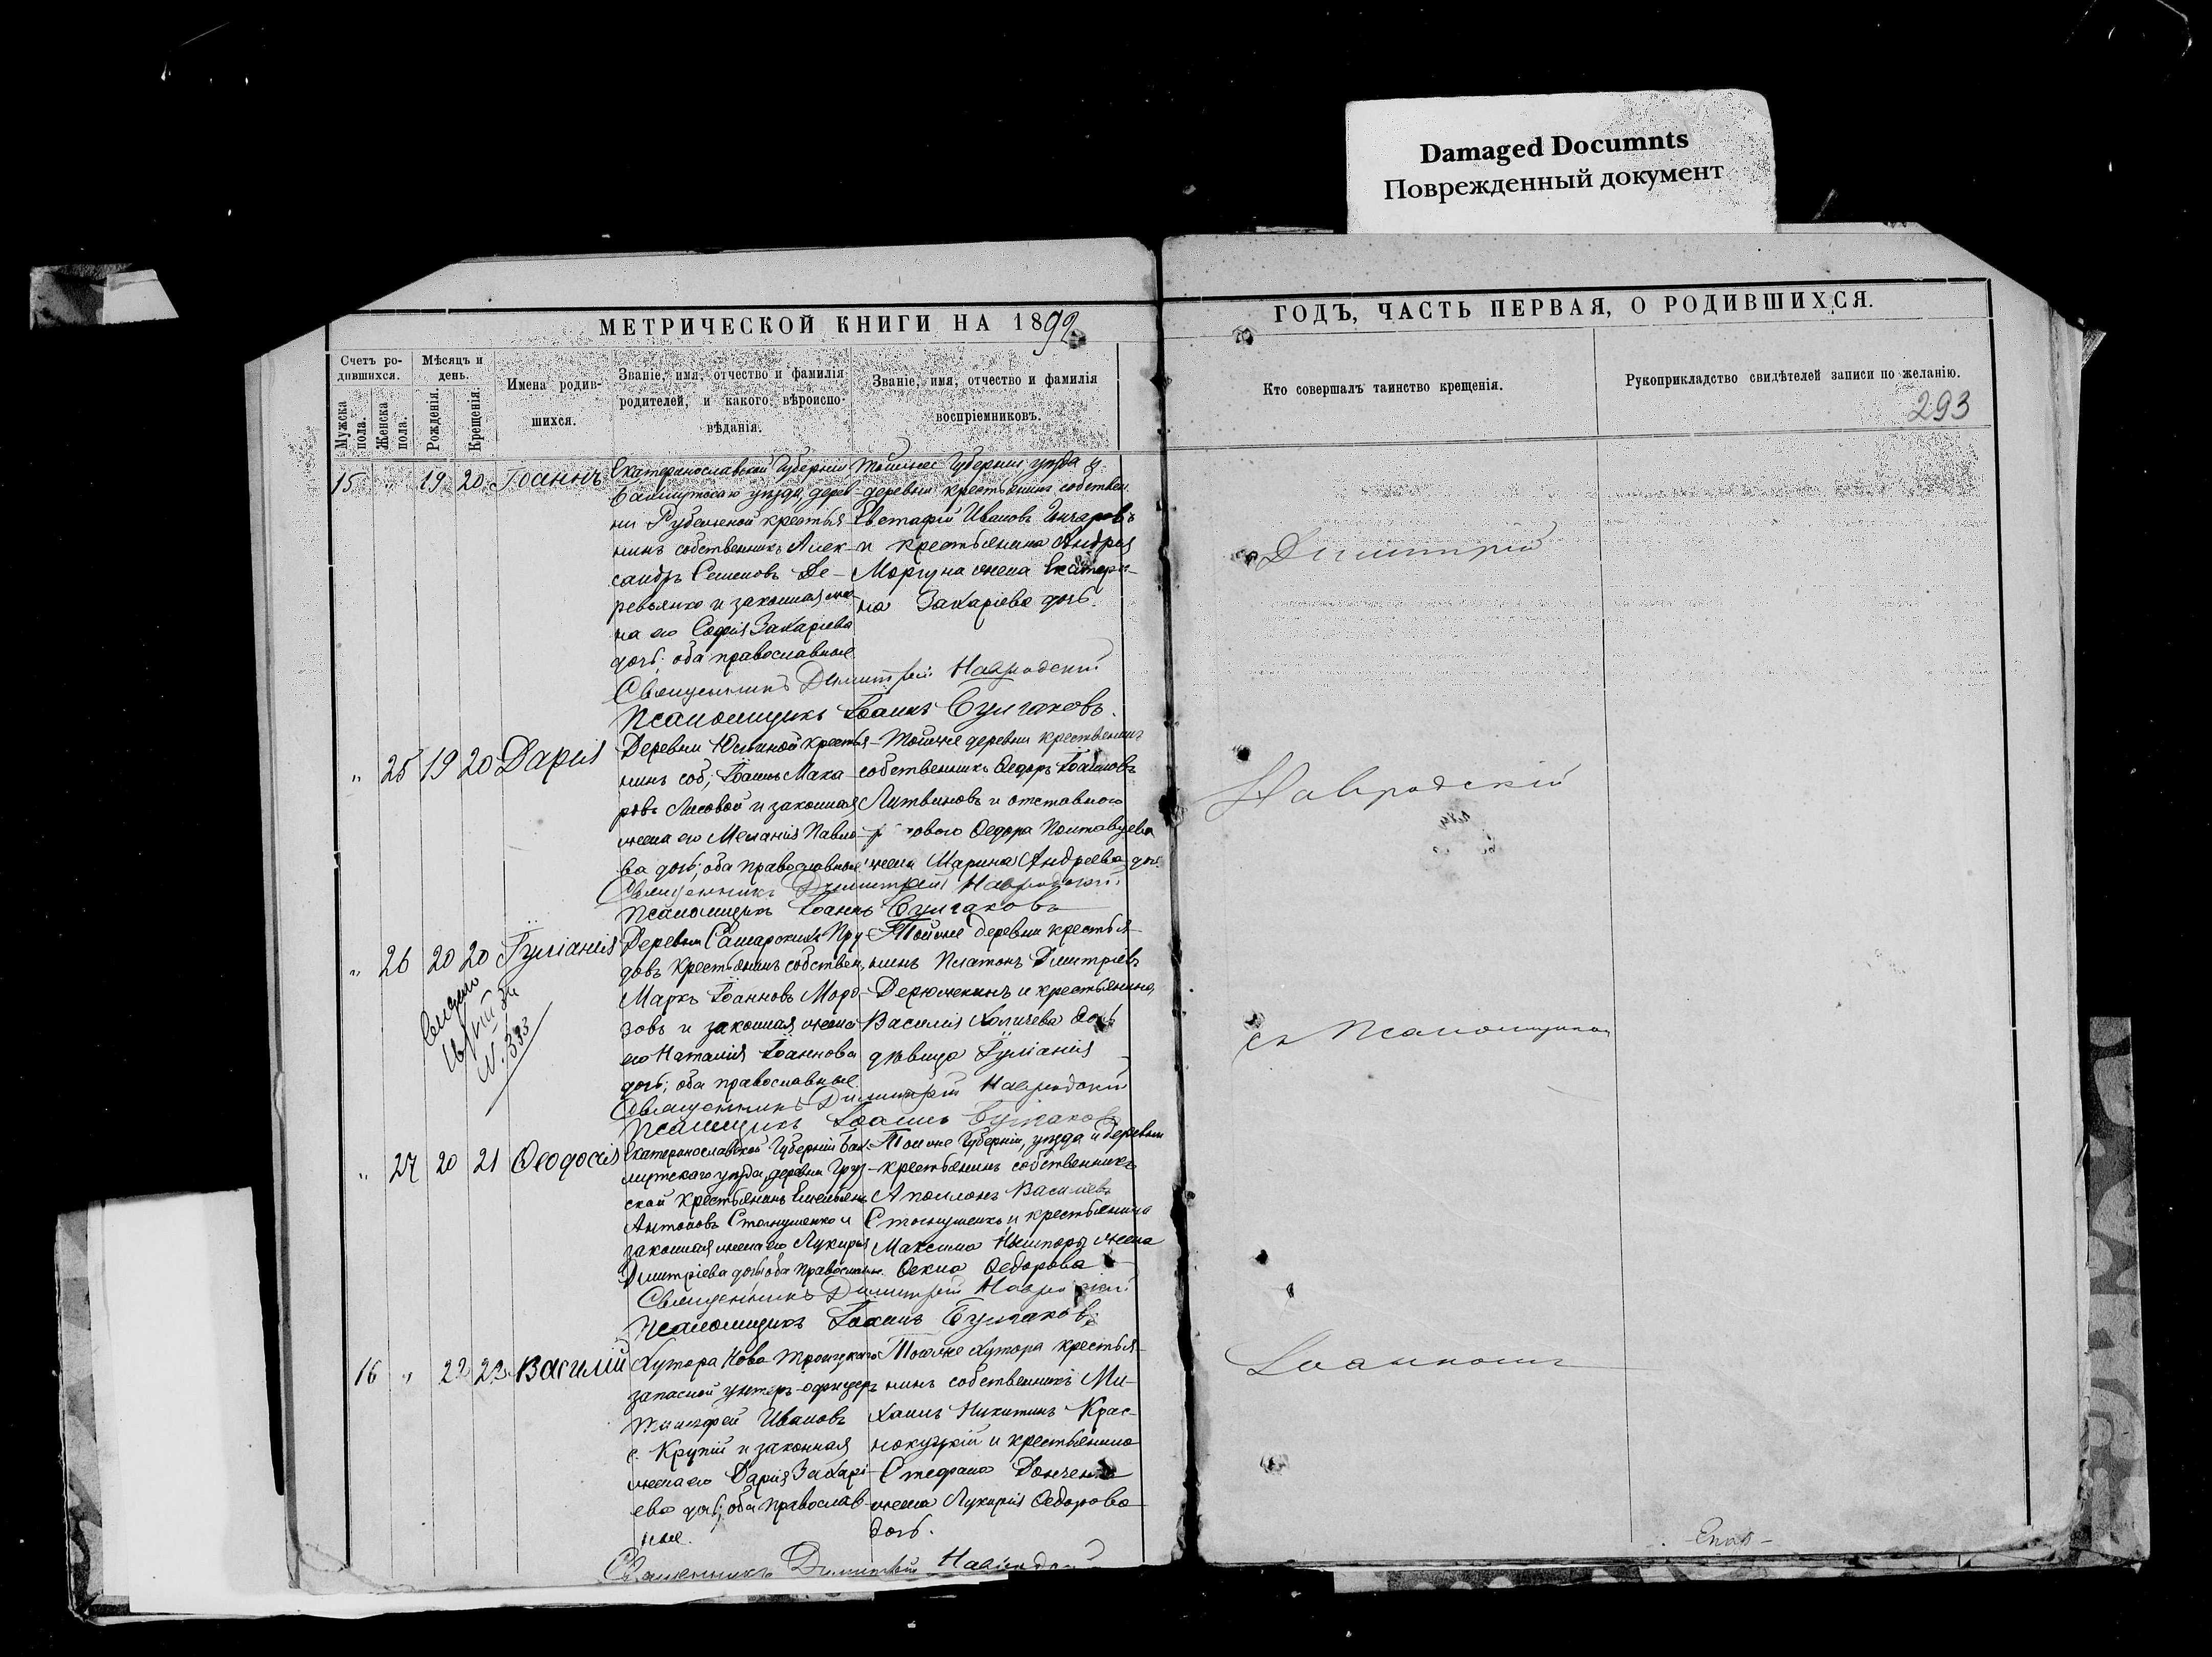 Damaged Documnts
Поврежденный документ
МЕТРИЧЕСКОЙ КНИГИ НА 1892
ГОДЪ, ЧАСТЬ ПЕРВАЯ, О РОДИВШИХСЯ.
Счетъ ро-
дившихся.
Мужска пола.
Женска пола.
Мѣсяцъ и
день.
Рожденія.
Крещенія.
Имена родив-
шихся.
Званіе, имя, отчество и фамилія
родителей, и какого вѣроиспо-
вѣданія.
Званіе, имя, отчество и фамилія
воспріемниковъ.
Кто совершалъ таинство крещенія.
Рукоприкладство свидѣтелей записи по желанію.
293
15 " 19 20 Іоаннъ
Екатеринославской Губерніи
Бахмутскаго уѣзда, дерев-
ни Рубежной крестья-
нинъ собственникъ Алек-
сандръ Семеновъ Де-
ревянко и законная же-
на его Софія Захаріева
дочь; оба православные
Тойже Губерніи, уѣзда и
деревни крестьянинъ собствен.
Евстафій Ивановъ Гончаровъ
и крестьянина Андрея
Моргуна жена Екатери-
на Захаріева дочь.
Священникъ Димитрій Навродскій
Псаломщикъ Іоаннъ Булгаковъ.
" 25 19 20 Дарія
Деревни Юсиной крестья-
нинъ соб; Іоаннъ Мака-
ровъ Лисовой и законная
жена его Меланія Павло-
ва дочь; оба православные
Тойже деревни крестьянинъ
собственникъ Ѳедоръ Іоанновъ
Литвиновъ и отставного
Ѳедора Полтавцева
жена Марина Андреева дочь
Священникъ Димитрій Навродскій
Псаломщикъ Іоаннъ Булгаковъ
" 26 20 20 Іуліанія
N. 393
Деревни Самарскихъ Пру-
довъ крестьянинъ собствен.
Маркъ Іоанновъ Моро-
зовъ и законная жена
его Наталія Іоаннова
дочь; оба православные.
Тойже деревни крестья-
нинъ Платонъ Димитріевъ
Дерюжкинъ и крестьянина
Василія дочь
дѣвица Іуліанія
Священникъ Димитрій Навродскій
Псаломщикъ Іоаннъ Булгаковъ
" 27 20 21 Ѳеодосія
Екатеринославской Губерніи Бах-
мутскаго уѣзда, деревни Груз-
ской крестьянинъ Емельянъ
Антоновъ Стогнушенко и
законная жена его Лукирія
Димитріева дочь; оба православн.
Тойже Губерніи, уѣзда и деревни
крестьянинъ собственникъ
Аполлонъ Васильевъ
Стогнушенко и крестьянина
Максима жена
Ѳекла Ѳедорова
Священникъ Димитрій Навродскій
Псаломщикъ Іоаннъ Булгаковъ.
16 " 22 23 Василій
Хутора Ново-Троицкаго
запасной унтеръ-офицеръ
Тимофей Ивановъ
Крупій и законная
жена его Дарія Захарі-
ева дочь; оба православ-
ные.
Тогоже хутора крестья-
нинъ собственникъ Ми-
хаилъ Никитинъ Крас-
нокуцкій и крестьянина
Стефана Донченка
жена Лукирія Ѳедорова
дочь.
Священникъ Димитрій Навродскій
Димитрій
Навродскій
съ Псаломщикомъ
Іоанномъ